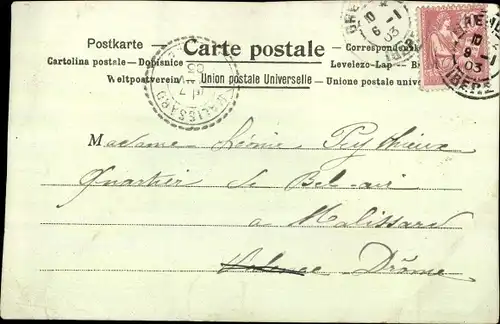 Postkarte — Carte postale — Correspondenzk
Cartolina postale - Dopisnice Levelezo-Lap - Br
Weltpostverein - Union postale Universelle - Unione postale unive
GRE
10
6 - 1
03
10
03
ISERE
MALISSARD
Madame Léonie
Quartier de Bel-air
a Malissard
Valence Drôme